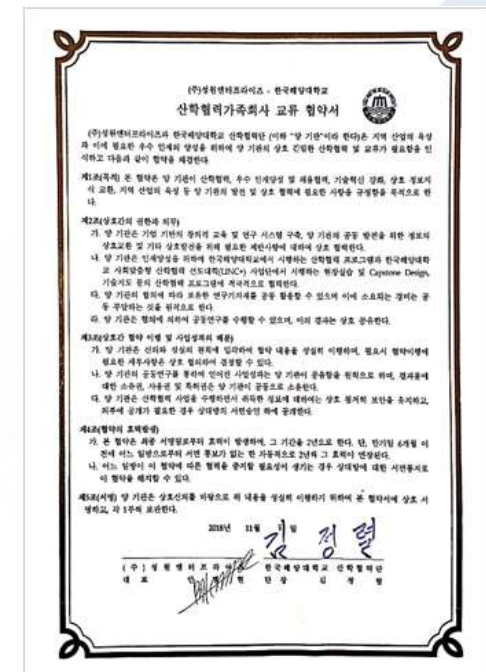 (주)성원엔터프라이즈 - 한국해양대학교
산학협력가족회사 교류 협약서
(주)성원엔터프라이즈과 한국해양대학교 산학협력단 (이하 "양 기관"이라 한다)은 지역 산업의 육성
과 이에 필요한 우수 인재의 양성을 위하여 양 기관의 상호 긴밀한 산학협력 및 교류가 필요함을 인
식하고 다음과 같이 협약을 체결한다.
제1조(목적) 본 협약은 양 기관이 산학협력, 우수 인재양성 및 채용협력, 기술혁신 강화, 상호 정보지
식 교환, 지역 산업의 육성 등 양 기관의 발전 및 상호 협력에 필요한 사항을 규정함을 목적으로 한
다.
제2조(상호간의 권한과 의무)
가. 양 기관은 기업 기반의 창의적 교육 및 연구 시스템 구축, 양 기관의 공동 발전을 위한 정보의
상호교환 및 기타 상호발전을 위해 필요한 제반사항에 대하여 상호 협력한다.
나. 양 기관은 인재양성을 위하여 한국해양대학교에서 시행하는 산학협력 프로그램과 한국해양대학
교 사회맞춤형 산학협력 선도대학(LINC+) 사업단에서 시행하는 현장실습 및 Capstone Design,
기술지도 등의 산학협력 프로그램에 적극적으로 협력한다.
다. 양 기관의 합의에 따라 보유한 연구기자재를 공동 활용할 수 있으며 이에 소요되는 경비는 공
동 부담하는 것을 원칙으로 한다.
라. 양 기관은 협의에 의하여 공동연구를 수행할 수 있으며, 이의 결과는 상호 공유한다.
제3조(상호간 협약 이행 및 사업성과의 배분)
가. 양 기관은 신의와 성실의 원칙에 입각하여 협약 내용을 성실히 이행하며, 필요시 협약이행에
필요한 세부사항은 상호 협의하여 결정할 수 있다.
나. 양 기관의 공동연구를 통하여 얻어진 사업성과는 양 기관이 공유함을 원칙으로 하며, 결과물에
대한 소유권, 사용권 및 특허권은 양 기관이 공동으로 소유한다.
다. 양 기관은 산학협력 사업을 수행하면서 취득한 정보에 대하여는 상호 철저히 보안을 유지하고,
외부에 공개가 필요한 경우 상대방의 서면승인 하에 공개한다.
제4조(협약의 효력발생)
가. 본 협약은 최종 서명일로부터 효력이 발생하며, 그 기간을 2년으로 한다. 단, 만기일 6개월 이
전에 어느 일방으로부터 서면 통보가 없는 한 자동적으로 2년씩 그 효력이 연장된다.
나. 어느 일방이 이 협약에 따른 협력을 중지할 필요성이 생기는 경우 상대방에 대한 서면통지로
이 협약을 해지할 수 있다.
제5조(서명) 양 기관은 상호신의를 바탕으로 위 내용을 성실히 이행하기 위하여 본 협약서에 상호 서
명하고, 각 1부씩 보관한다.
2018년 11월 일
김 정 렬
(주)성원엔터프라 한국해양대학교 산학협력단
대 표 현 단 장 김 정 렬